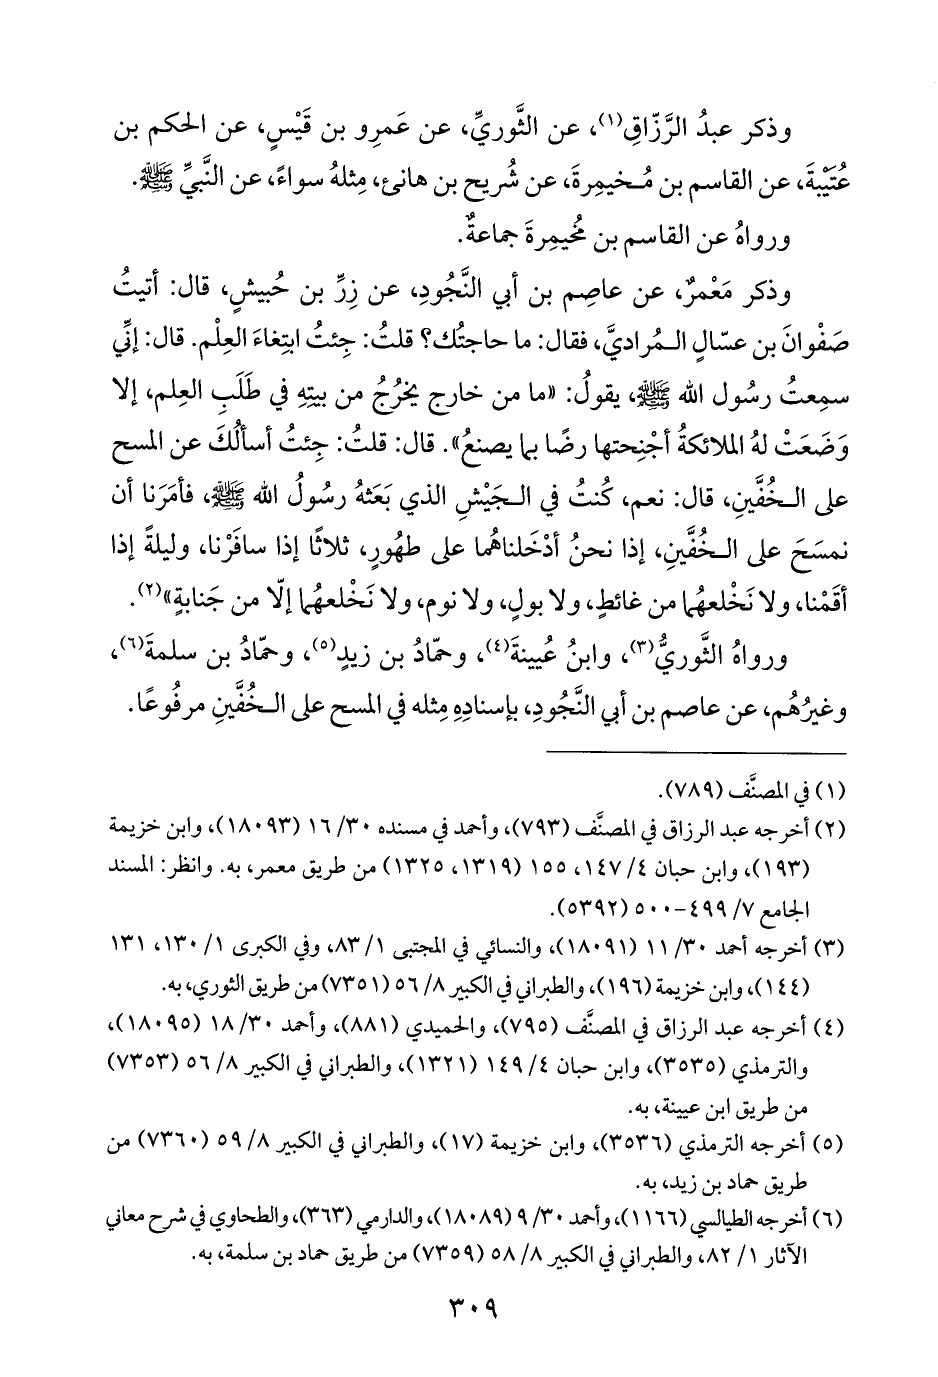 وذكر عبدُ الرَّزّاقِ(١)، عن الثَّوريِّ، عن عَمرِو بن قَيْسٍ، عن الحكم بن
عُتَيْبةَ، عن القاسم بن مُخيمِرةَ، عن شُريح بن هانئ، مِثلهُ سواءً، عن النَّبيِّ ﷺ.
ورواهُ عن القاسم بن مُخيمِرةَ جماعةٌ.
وذكر مَعْمرٌ، عن عاصِم بن أبي النَّجُودِ، عن زِرِّ بن حُبيشٍ، قال: أتيتُ
صَفْوانَ بن عسّالٍ المُراديَّ، فقال: ما حاجتُك؟ قلتُ: جِئتُ ابتِغاءَ العِلْم. قال: إنِّي
سمِعتُ رسُول الله ﷺ، يقولُ: «ما من خارج يخرُجُ من بيتِهِ في طَلَبِ العِلم، إلا
وَضَعَتْ لهُ الملائكةُ أجْنِحتها رضًا بما يصنعُ». قال: قلتُ: جِئتُ أسألُكَ عن المسح
على الخُفَّينِ، قال: نعم، كُنتُ في الجَيْشِ الذي بَعَثهُ رسُولُ الله ﷺ، فأمَرَنا أن
نمسَحَ على الخُفَّينِ، إذا نحنُ أدْخَلناهُما على طهُورٍ، ثلاثًا إذا سافَرْنا، وليلةً إذا
أقَمْنا، ولا نَخْلعهُما من غائطٍ، ولا بولٍ، ولا نوم، ولا نَخْلعهُما إلّا من جَنابةٍ»(٢).
ورواهُ الثَّوريُّ(٣)، وابنُ عُيينةَ(٤)، وحمّادُ بن زيدٍ(٥)، وحمّادُ بن سلمةَ(٦)،
وغيرُهُم، عن عاصم بن أبي النَّجُودِ، بإسنادِهِ مِثله في المسح على الخُفَّينِ مرفُوعًا.
(١) في المصنَّف (٧٨٩).
(٢) أخرجه عبد الرزاق في المصنَّف (٧٩٣)، وأحمد في مسنده ٣٠/ ١٦ (١٨٠٩٣)، وابن خزيمة
(١٩٣)، وابن حبان ٤/ ١٤٧، ١٥٥ (١٣١٩، ١٣٢٥) من طريق معمر، به. وانظر: المسند
الجامع ٧/ ٤٩٩-٥٠٠ (٥٣٩٢).
(٣) أخرجه أحمد ٣٠/ ١١ (١٨٠٩١)، والنسائي في المجتبى ١/ ٨٣، وفي الكبرى ١/ ١٣٠، ١٣١
(١٤٤)، وابن خزيمة (١٩٦)، والطبراني في الكبير ٨/ ٥٦ (٧٣٥١) من طريق الثوري، به.
(٤) أخرجه عبد الرزاق في المصنَّف (٧٩٥)، والحميدي (٨٨١)، وأحمد ٣٠/ ١٨ (١٨٠٩٥)،
والترمذي (٣٥٣٥)، وابن حبان ٤/ ١٤٩ (١٣٢١)، والطبراني في الكبير ٨/ ٥٦ (٧٣٥٣)
من طريق ابن عيينة، به.
(٥) أخرجه الترمذي (٣٥٣٦)، وابن خزيمة (١٧)، والطبراني في الكبير ٨/ ٥٩ (٧٣٦٠) من
طريق حماد بن زيد، به.
(٦) أخرجه الطيالسي (١١٦٦)، وأحمد ٣٠/ ٩ (١٨٠٨٩)، والدارمي (٣٦٣)، والطحاوي في شرح معاني
الآثار ١/ ٨٢، والطبراني في الكبير ٨/ ٥٨ (٧٣٥٩) من طريق حماد بن سلمة، به.
٣٠٩